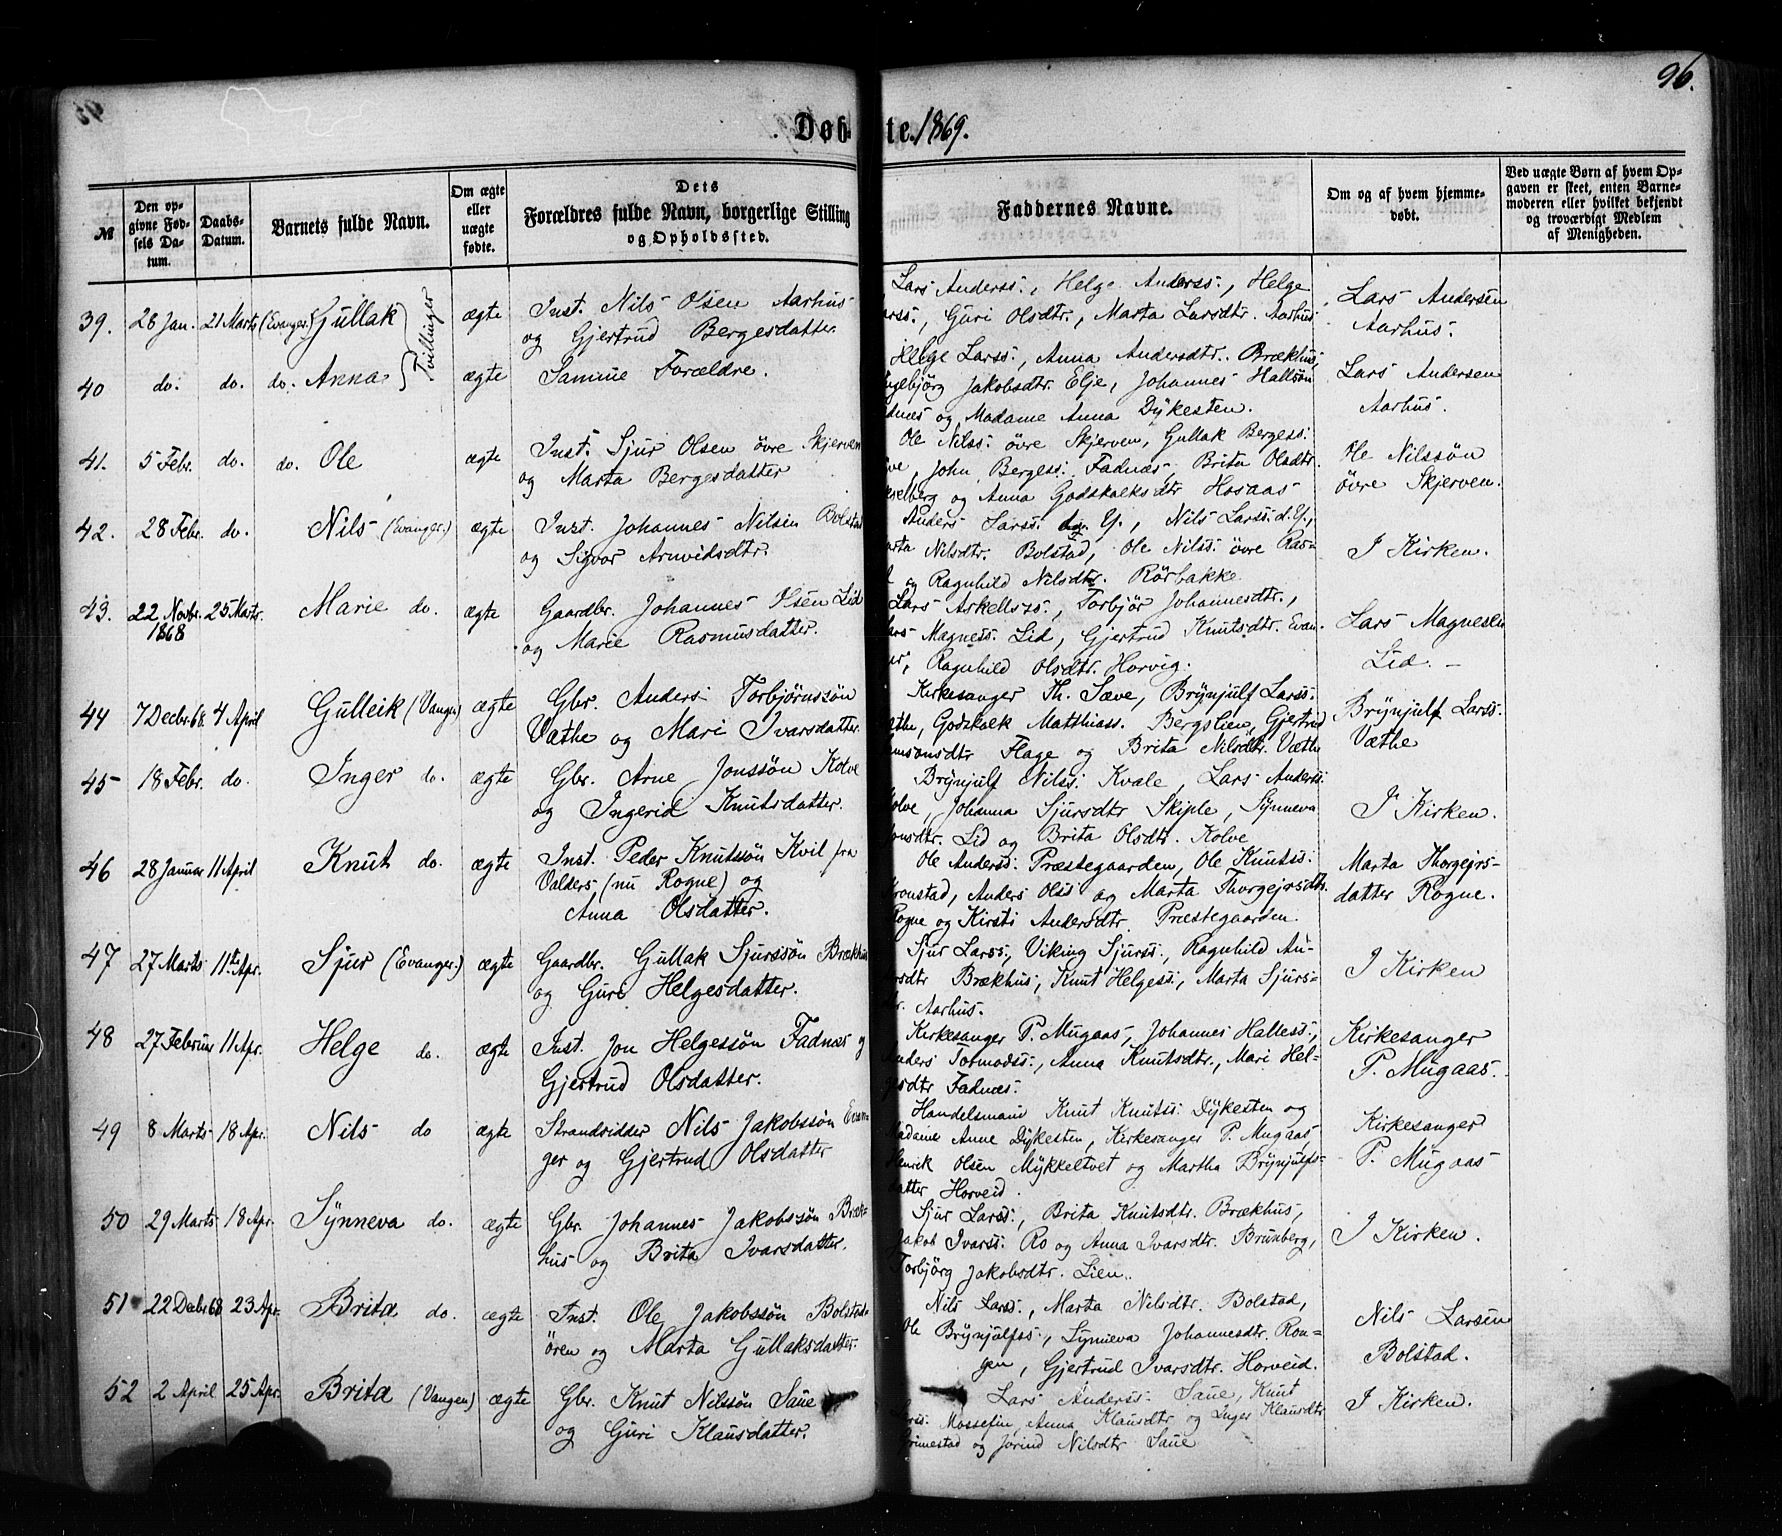 96.
Døb te. 1869.
№
Den opgivne Fødsels Datum.
Daabs-Datum.
Barnets fulde Navn.
Om ægte eller uægte fødte.
Dets Forældres fulde Navn, borgerlige Stilling og Opholdssted.
Faddernes Navne.
Om og af hvem hjemmedøbt.
Ved uægte Børn af hvem Opgaven er skeet, enten Barnemoderen eller hvilket bekjendt og troværdigt Medlem af Menigheden.
39. 28 Jan. 21 Marts (Evanger.) Gullak Tvillinger ægte
Inst. Nils Olsen Aarhus
og Gjertrud Bergesdatter
Lars Anderss:, Helge Anderss:, Helge
Guri Olsdtr., Marta Larsdtr. Aarhus
Lars Andersen
Aarhus.
40 do. do. do. Anna ægte
Samme Forældre.
Helge Larss:, Anna Andersdtr. Brækhus,
Jakobsdtr. Elje, Johannes Hallsøn
og Madame Anna Dykesten.
Lars Andersen
Aarhus.
41. 5 Febr. do. do. Ole ægte
Inst. Sjur Olsen övre Skjerven
og Marta Bergesdatter
Ole Nilss: övre Skjerven, Gullak Bergess:
John Bergess: Fadnæs, Brita Olsdtr.
og Anna Godskalksdtr Hosaas
Ole Nilssön
övre Skjerven.
42. 28 Febr. do. Nils (Evanger.) ægte
Inst. Johannes Nilsen Bolstad
og Sigvor Arnvidsdtr.
Anders Larss: Y., Nils Larss: d. Y.,
Nilsdtr. Bolstad, Ole Nilss: övre Ras-
og Ragnhild Nilsdtr. Rörbakke
I Kirken.
43. 22 Novbr. 1868 25 Marts. Marie do. ægte
Gaardbr. Johannes Olsen Lid
og Marie Rasmusdatter.
Lars Askelss:, Torbjör Johannesdtr.,
Magness: Lid, Gjertrud Knutsdtr. Evan-
Ragnhild Olsdtr. Horvig.
Lars Magnesen
Lid. –
44 7 Decbr. 68. 4 April Gulleik (Vangen) ægte
Gbr. Anders Torbjørnssøn
Væthe og Mari Ivarsdatter.
Kirkesanger Th. Sæve, Brynjulf Larss:
Godskalk Matthiass. Bergslien, Gjertrud
Flage og Brita Nilsdtr. Væthe
Brynjulf Larss.
Væthe
45 18 Febr. do. Inger do. ægte
Gbr. Arne Jonssön Kolve
og Ingerid Knutsdatter.
Brynjulf Nilss: Kvale, Lars Anderss:
Kolve, Johanna Sjursdtr Skiple, Synneva
Lid og Brita Olsdtr. Kolve
I Kirken.
46 28 Januar 11 April Knut do. ægte
Inst. Peder Knutssön Kvil fra
Valders (nu Rogne) og
Anna Olsdatter.
Ole Anderss: Præstegaarden, Ole Knutss:
Anders Olss og Marta Thorgejrsdtr.
Rogne og Kirsti Andersdtr. Præstegaarden.
Marta Thorgejrs-
datter Rogne.
47 27 Marts 11te Apr. Sjur (Evanger.) ægte
Gaardbr. Gullak Sjurssön Brækhus
og Guri Helgesdatter.
Sjur Larss:, Viking Sjurss:, Ragnhild An-
Brækhus, Knut Helgess:, Marta Sjurs-
Aarhus.
I Kirken
48 27 Februar 11 Apr. Helge do. ægte
Inst. Jon Helgessön Fadnæs og
Gjertrud Olsdatter.
Kirkesanger P. Mugaas, Johannes Halless:,
Anders Tormodss:, Anna Knutsdtr., Mari Hel-
gesdtr Fadnæs.
Kirkesanger
P. Mugaas.
49 8 Marts 18 Apr. Nils do ægte
Strandsidder Nils Jakobssön Evan-
ger og Gjertrud Olsdatter
Handelsmand Knut Knutss: Dykesten og
Madame Anne Dykesten, Kirkesanger P. Mugaas,
Henrik Olsen Mykkeltvet og Martha Brynjulfs-
datter Horveid.
Kirkesanger
P. Mugaas
50 29 Marts 18 Apr. Synneva do. ægte
Gbr. Johannes Jakobssön Bræk-
hus og Brita Ivarsdatter.
Sjur Larss:, Brita Knutsdtr. Brækhus,
Jakob Ivarss: Ro og Anna Ivarsdtr. Brunberg,
Torbjörg Jakobsdtr. Lien.
I Kirken.
51 22 Decbr 68 23 Apr. Brita do. ægte
Inst. Ole Jakobssön Bolstad-
ören og Marta Gullaksdatter.
Nils Larss:, Marta Nilsdtr. Bolstad,
Ole Brynjulfss:, Synneva Johannesdtr. Ron-
gen, Gjertrud Ivarsdtr. Horveid.
Nils Larsen
Bolstad.
52 2 April 25 Apr. Brita (Vangen) ægte
Gbr. Knut Nilssön Saue
og Guri Klausdatter.
Lars Anderss: Saue, Knut
Mossefin, Anna Klausdtr. og Inger Klausdtr
Grimestad og Jorind Nilsdtr Saue
I Kirken.